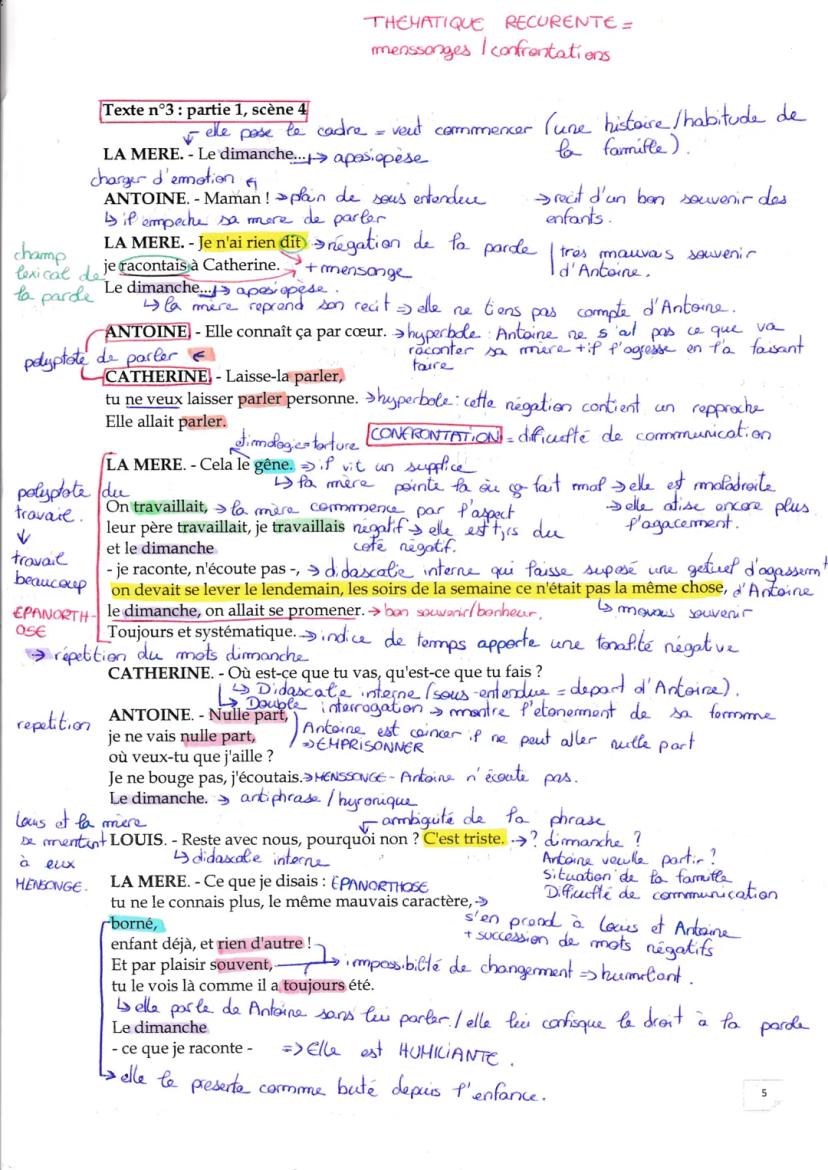 THEMATIQUE RECURENTE =
menssonges / confrontations
Texte n°3 : partie 1, scène 4
↳ elle pose le cadre = veut commencer (une histoire/habitude de
la famille).
LA MERE. - Le dimanche... → aposiopèse
charger d'emotion
ANTOINE. - Maman ! → plain de sous entendue
→ recit d'un bon souvenir des
enfants.
↳ il empeche sa mere de parler
LA MERE. - Je n'ai rien dit → négation de la parole
très mauvais souvenir
d'Antoine.
champ
lexical de
la parole
je racontais à Catherine. → + mensonge
Le dimanche... → aposiopèse.
↳ la mère reprend son recit ⇒ elle ne tiens pas compte d'Antoine.
ANTOINE. - Elle connaît ça par cœur. → hyperbole : Antoine ne s'ait pas ce que va
raconter sa mère + il l'agresse en l'a faisant
taire
polyptote de parler
CATHERINE. - Laisse-la parler,
tu ne veux laisser parler personne. → hyperbole : cette négation contient un repproche
Elle allait parler.
CONFRONTATION = difficulté de communication
étimologie = torture
LA MERE. - Cela le gêne. ⇒ il vit un supplice
↳ la mère pointe la où ça fait mal → elle est maladroite
→ elle atise encore plus
l'agacement.
polyptote du
travail.
↓
travail
beaucoup
On travaillait, → la mère commence par l'aspect
leur père travaillait, je travaillais négatif → elle est tjrs du
et le dimanche coté négatif.
- je raconte, n'écoute pas -, → didascalie interne qui laisse suposé une getuel d'agassemt
d'Antoine
on devait se lever le lendemain, les soirs de la semaine ce n'était pas la même chose,
EPANORTH-
OSE
le dimanche, on allait se promener. → bon souvenir/bonheur.
↳ mauvais souvenir
Toujours et systématique. → indice de temps apporte une tonalité négative
→ répetition du mots dimanche
CATHERINE. - Où est-ce que tu vas, qu'est-ce que tu fais ?
↳ Didascalie interne (sous-entendue = depart d'Antoine).
↳ Double interrogation → montre l'etonement de sa femme
repetition
ANTOINE. - Nulle part,
je ne vais nulle part,
Antoine est coincer il ne peut aller nulle part
⇒ EMPRISONNER
où veux-tu que j'aille ?
Je ne bouge pas, j'écoutais. → MENSSONGE - Antoine n'écoute pas.
Le dimanche. → antiphrase / hyronique
Louis et la mère
se mentent
à eux
MENSONGE.
ambiguité de la phrase
LOUIS. - Reste avec nous, pourquoi non ? C'est triste. → ? dimanche ?
↳ didascalie interne
Antoine veulle partir ?
Situation de la famille
Difficulté de communication
LA MERE. - Ce que je disais : EPANORTHOSE
tu ne le connais plus, le même mauvais caractère, →
s'en prend à Louis et Antoine
+ succession de mots négatifs
borné,
enfant déjà, et rien d'autre !
Et par plaisir souvent, → impossibilité de changement ⇒ humiliant.
tu le vois là comme il a toujours été.
↳ elle parle de Antoine sans lui parler / elle lui confisque le droit à la parole
Le dimanche
- ce que je raconte - ⇒ Elle est HUMILIANTE.
→ elle le presente comme buté depuis l'enfance.
5